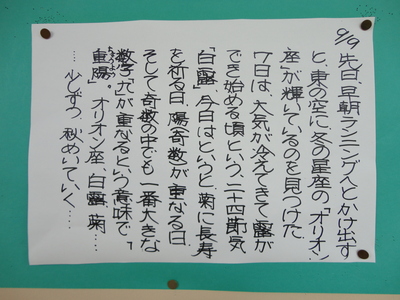 9/9 先日、早朝ランニングへとかけ出す
と、東の空に、冬の星座の「オリオン
座」が輝いているのを見つけた。
7日は、大気が冷えてきて露が
でき始める頃という、二十四節気
「白露」、今日はというと、菊に長寿
を祈る日。陽(奇数)が重なる日、
そして奇数の中でも一番大きな
数字"九"が重なるという意味で「
重陽」。オリオン座、白露、菊……
ちょうよう
……少しずつ、秋めいていく……